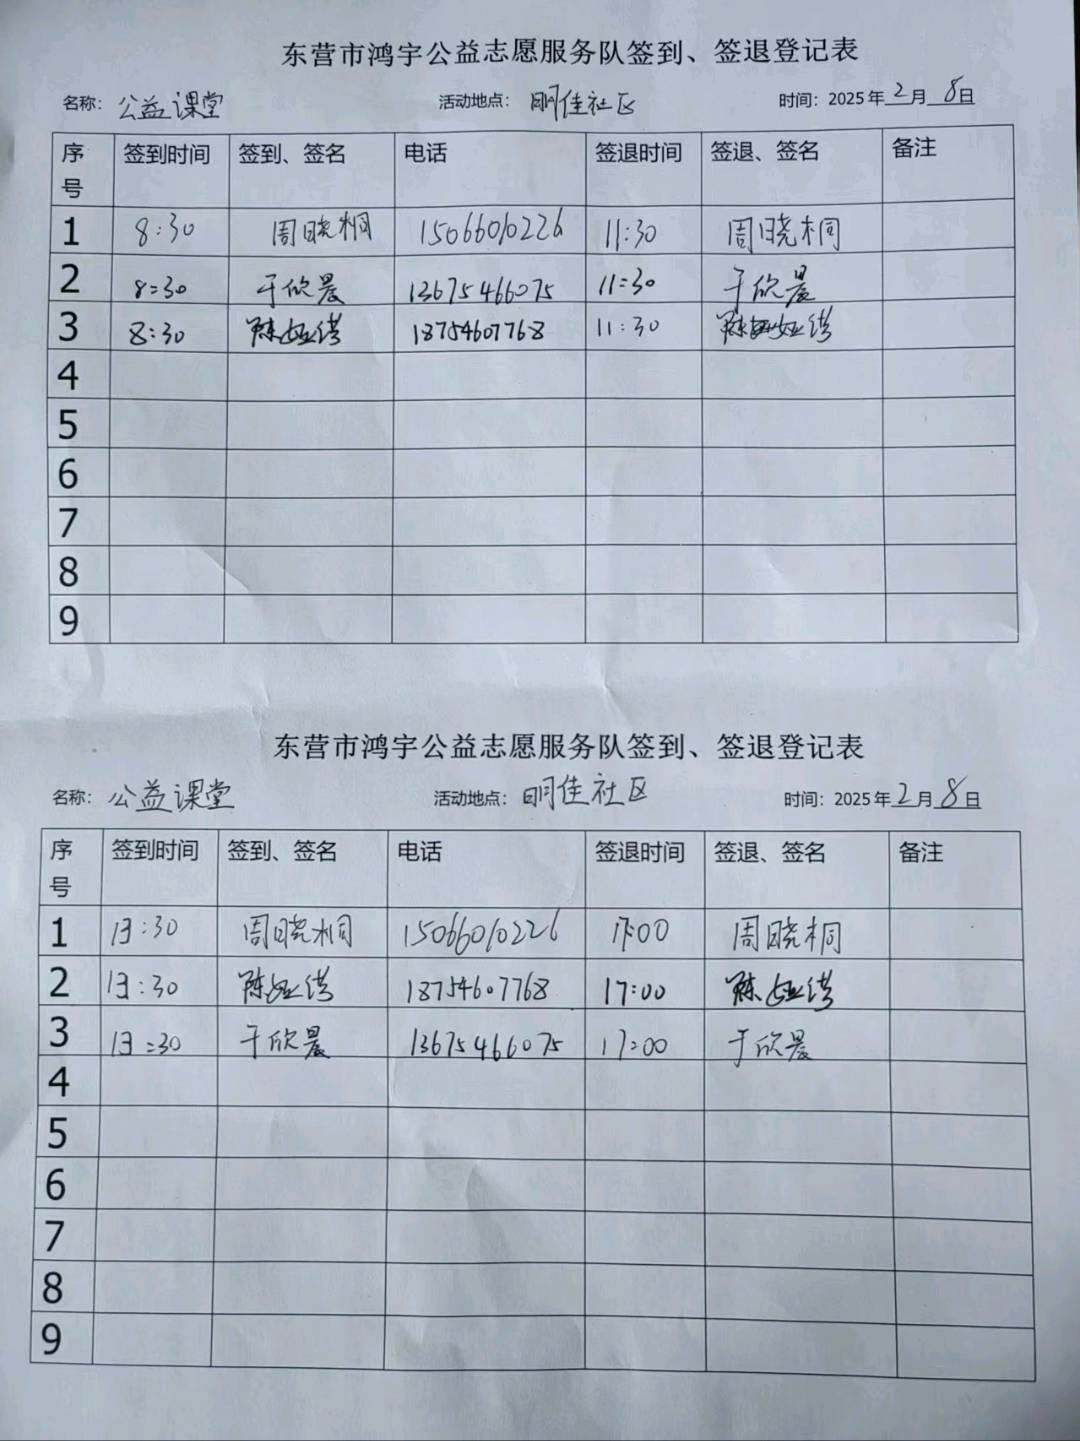 东营市鸿宇公益志愿服务队签到、签退登记表
名称：公益课堂 活动地点：明佳社区 时间：2025年2月8日
序号 签到时间 签到、签名 电话 签退时间 签退、签名 备注
1 8:30 周晓桐 15066010226 11:30 周晓桐
2 8:30 于欣晨 13675466075 11:30 于欣晨
3 8:30 陈娅 18754607768 11:30 陈娅
4
5
6
7
8
9
东营市鸿宇公益志愿服务队签到、签退登记表
名称：公益课堂 活动地点：明佳社区 时间：2025年2月8日
序号 签到时间 签到、签名 电话 签退时间 签退、签名 备注
1 13:30 周晓桐 15066010226 17:00 周晓桐
2 13:30 陈娅 18754607768 17:00 陈娅
3 13:30 于欣晨 13675466075 17:00 于欣晨
4
5
6
7
8
9